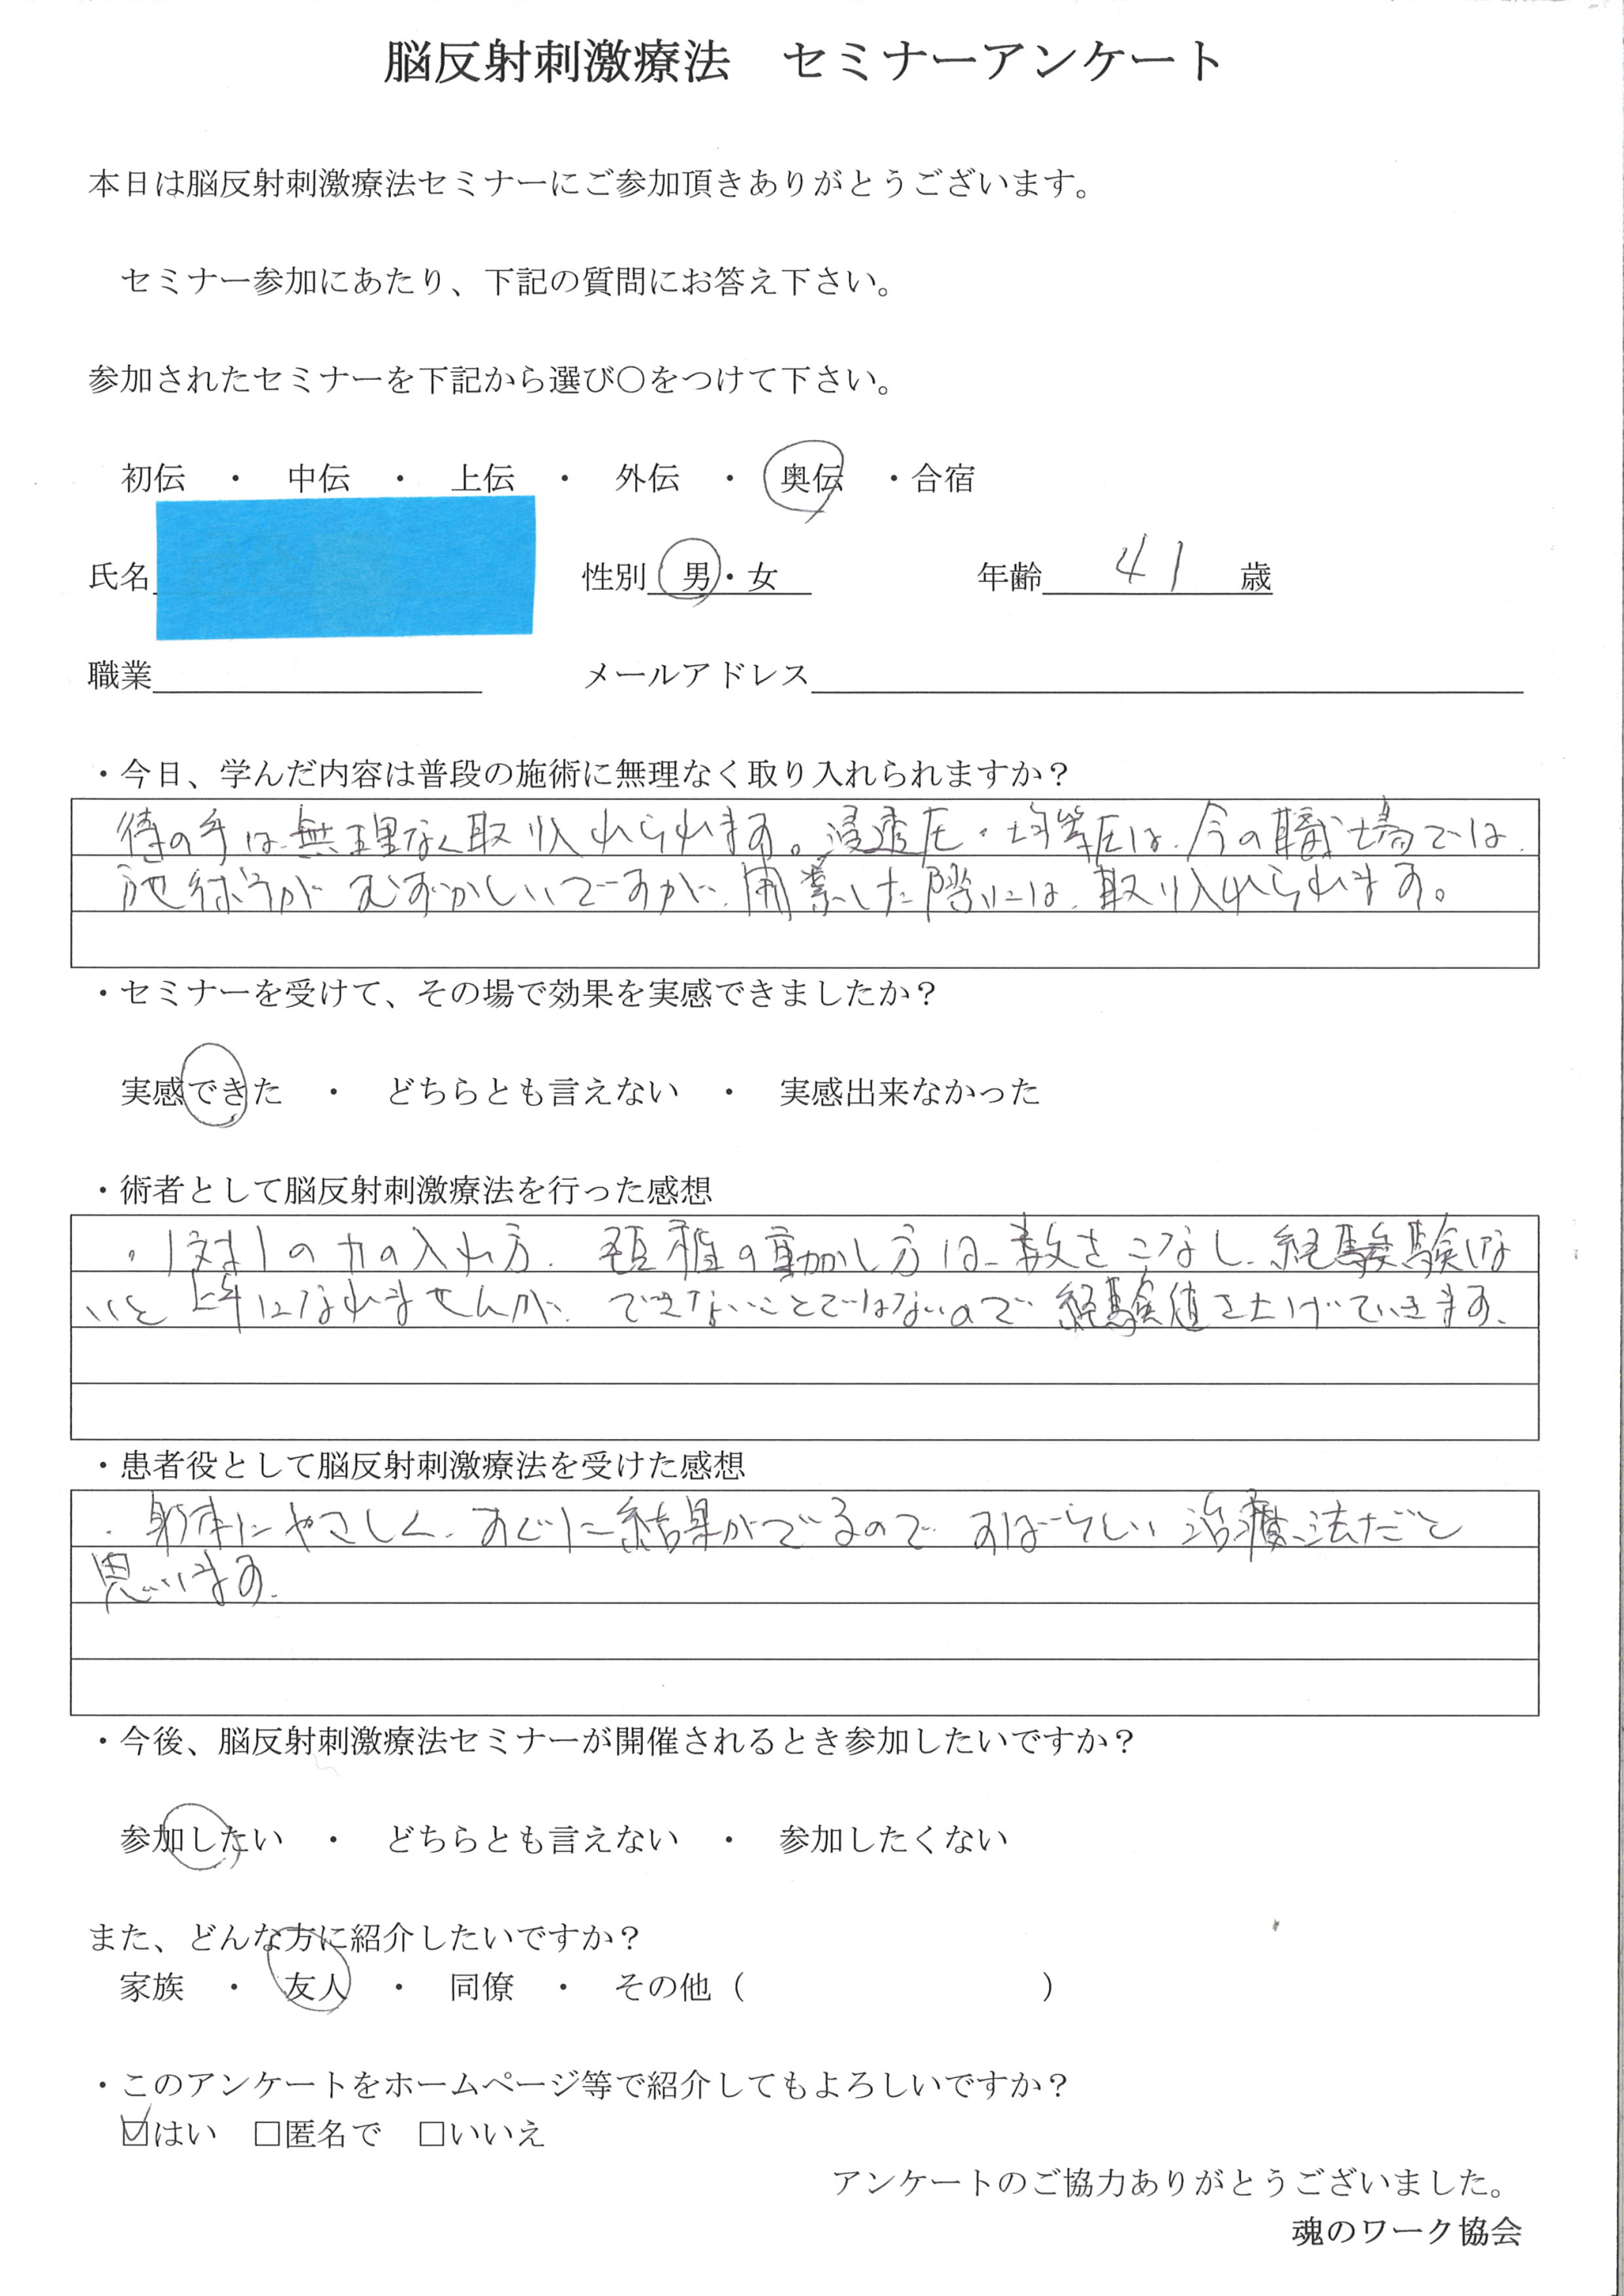 脳反射刺激療法 セミナーアンケート
本日は脳反射刺激療法セミナーにご参加頂きありがとうございます。
セミナー参加にあたり、下記の質問にお答え下さい。
参加されたセミナーを下記から選び○をつけて下さい。
初伝 ・ 中伝 ・ 上伝 ・ 外伝 ・ 奥伝 ・合宿
氏名 性別 男・女 年齢 41 歳
職業 メールアドレス
・今日、学んだ内容は普段の施術に無理なく取り入れられますか？
待の手は無理なく取り入れられます。浸透圧・均等圧は、今の職場では、
施術がむずかしいですが、開業した際には、取り入れられます。
・セミナーを受けて、その場で効果を実感できましたか？
実感できた ・ どちらとも言えない ・ 実感出来なかった
・術者として脳反射刺激療法を行った感想
・1対1の力の入れ方、頚椎の動かし方は、数をこなし、経験しな
いと上手になれませんが、できないことではないので経験値を上げていきます。
・患者役として脳反射刺激療法を受けた感想
・身体にやさしく、すぐに結果がでるので、すばらしい治療法だと
思います。
・今後、脳反射刺激療法セミナーが開催されるとき参加したいですか？
参加したい ・ どちらとも言えない ・ 参加したくない
また、どんな方に紹介したいですか？
家族 ・ 友人 ・ 同僚 ・ その他（ ）
・このアンケートをホームページ等で紹介してもよろしいですか？
☑はい □匿名で □いいえ
アンケートのご協力ありがとうございました。
魂のワーク協会